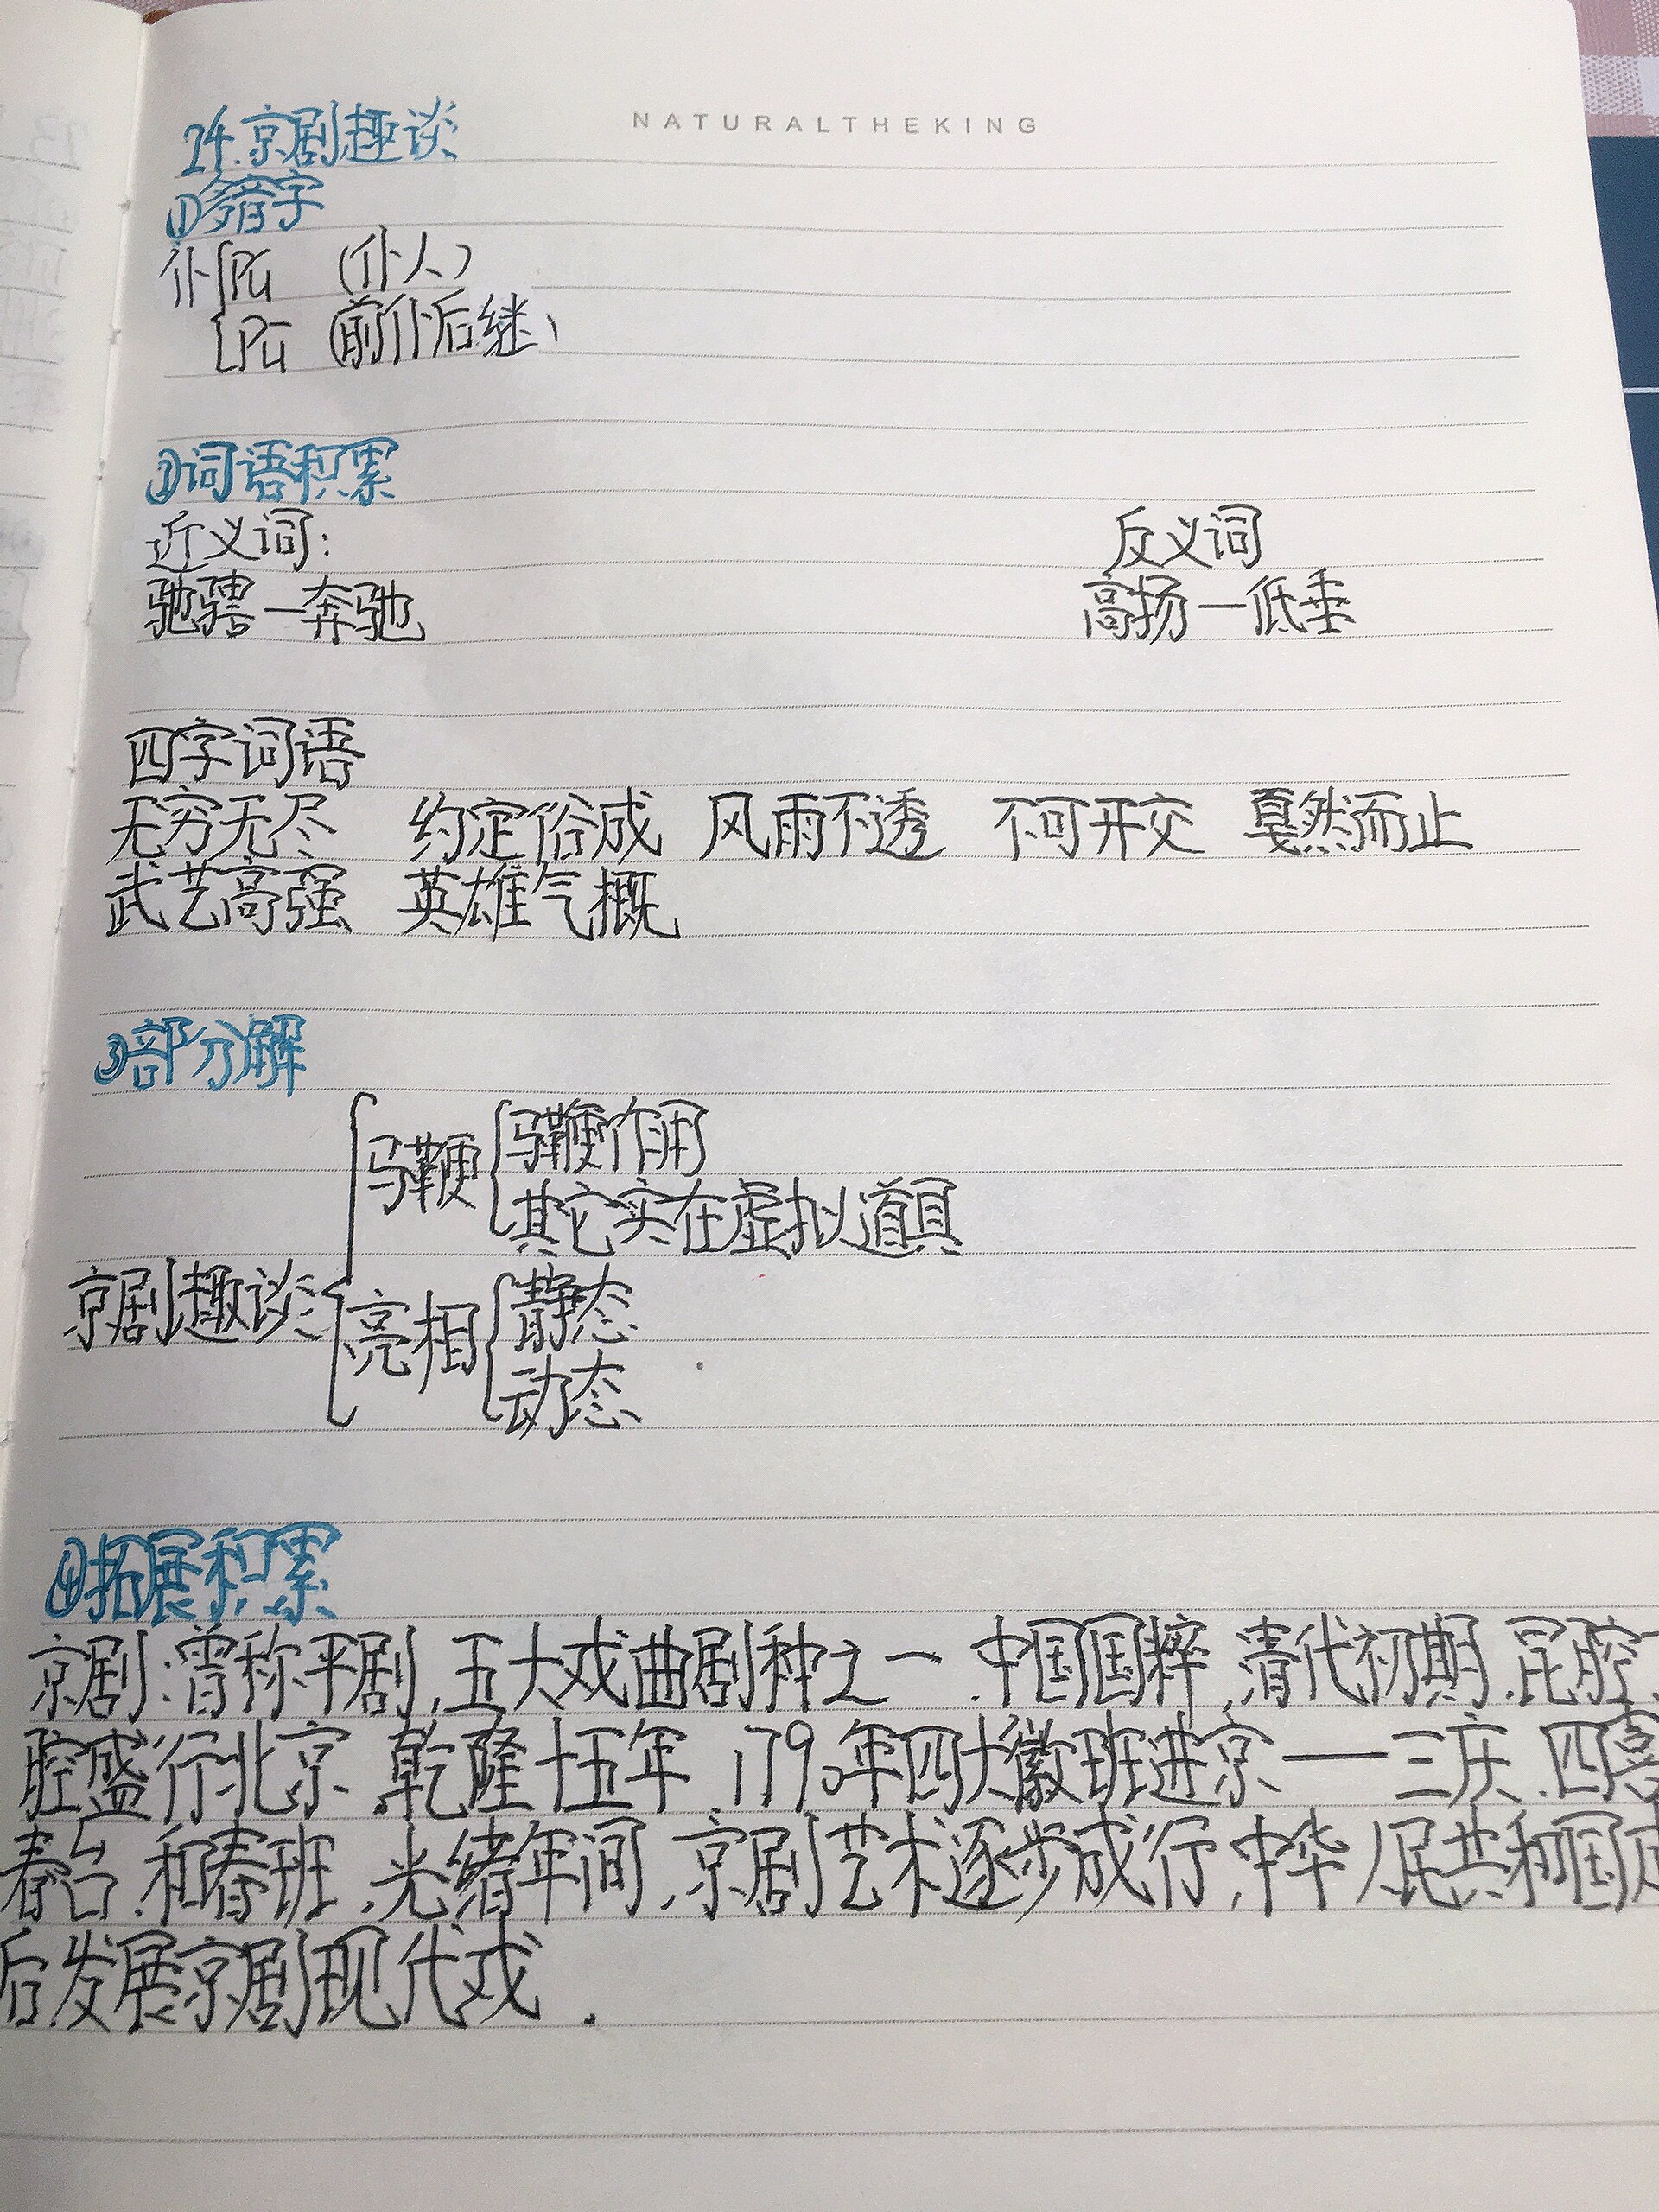 NATURALTHEKING
24.京剧趣谈
①多音字
仆 pú （仆人）
pū （前仆后继）
②词语积累
近义词： 反义词
驰骋—奔驰 高扬—低垂
四字词语
无穷无尽 约定俗成 风雨不透 不可开交 戛然而止
武艺高强 英雄气概
③部分解
马鞭 马鞭作用
其它实在虚拟道具
京剧趣谈 亮相 静态
动态
④拓展积累
京剧：曾称平剧,五大戏曲剧种之一.中国国粹,清代初期.昆腔、
腔盛行北京.乾隆十五年.1790年四大徽班进京——三庆.四喜
春台.和春班.光绪年间.京剧艺术逐步成行,中华人民共和国
后发展京剧现代戏.